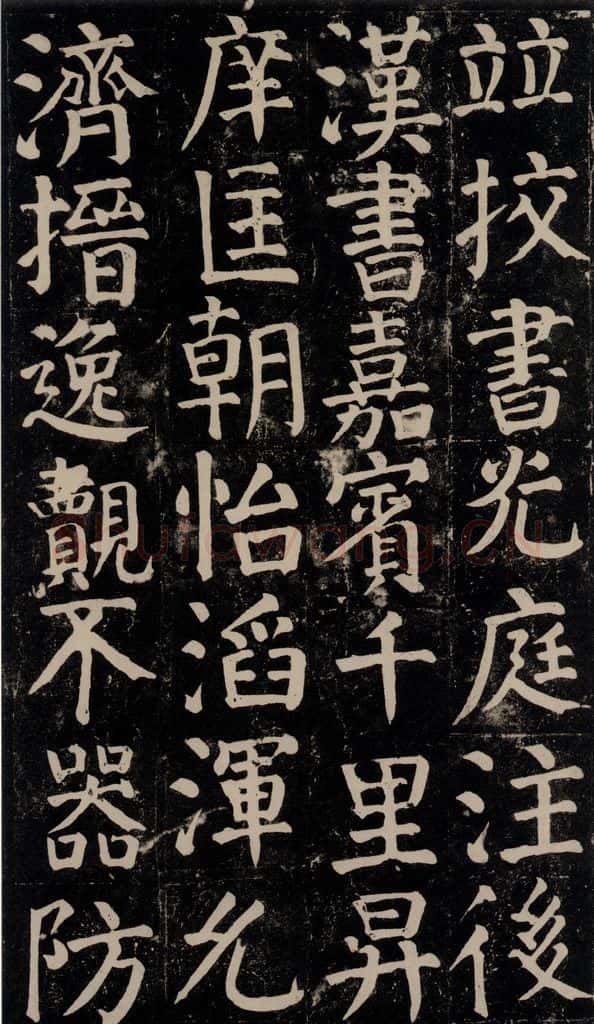 竝挍書光庭注後
漢書嘉賓千里昇
庠匡朝怡滔渾允
濟搢逸覿不器防
Shufawang.cn